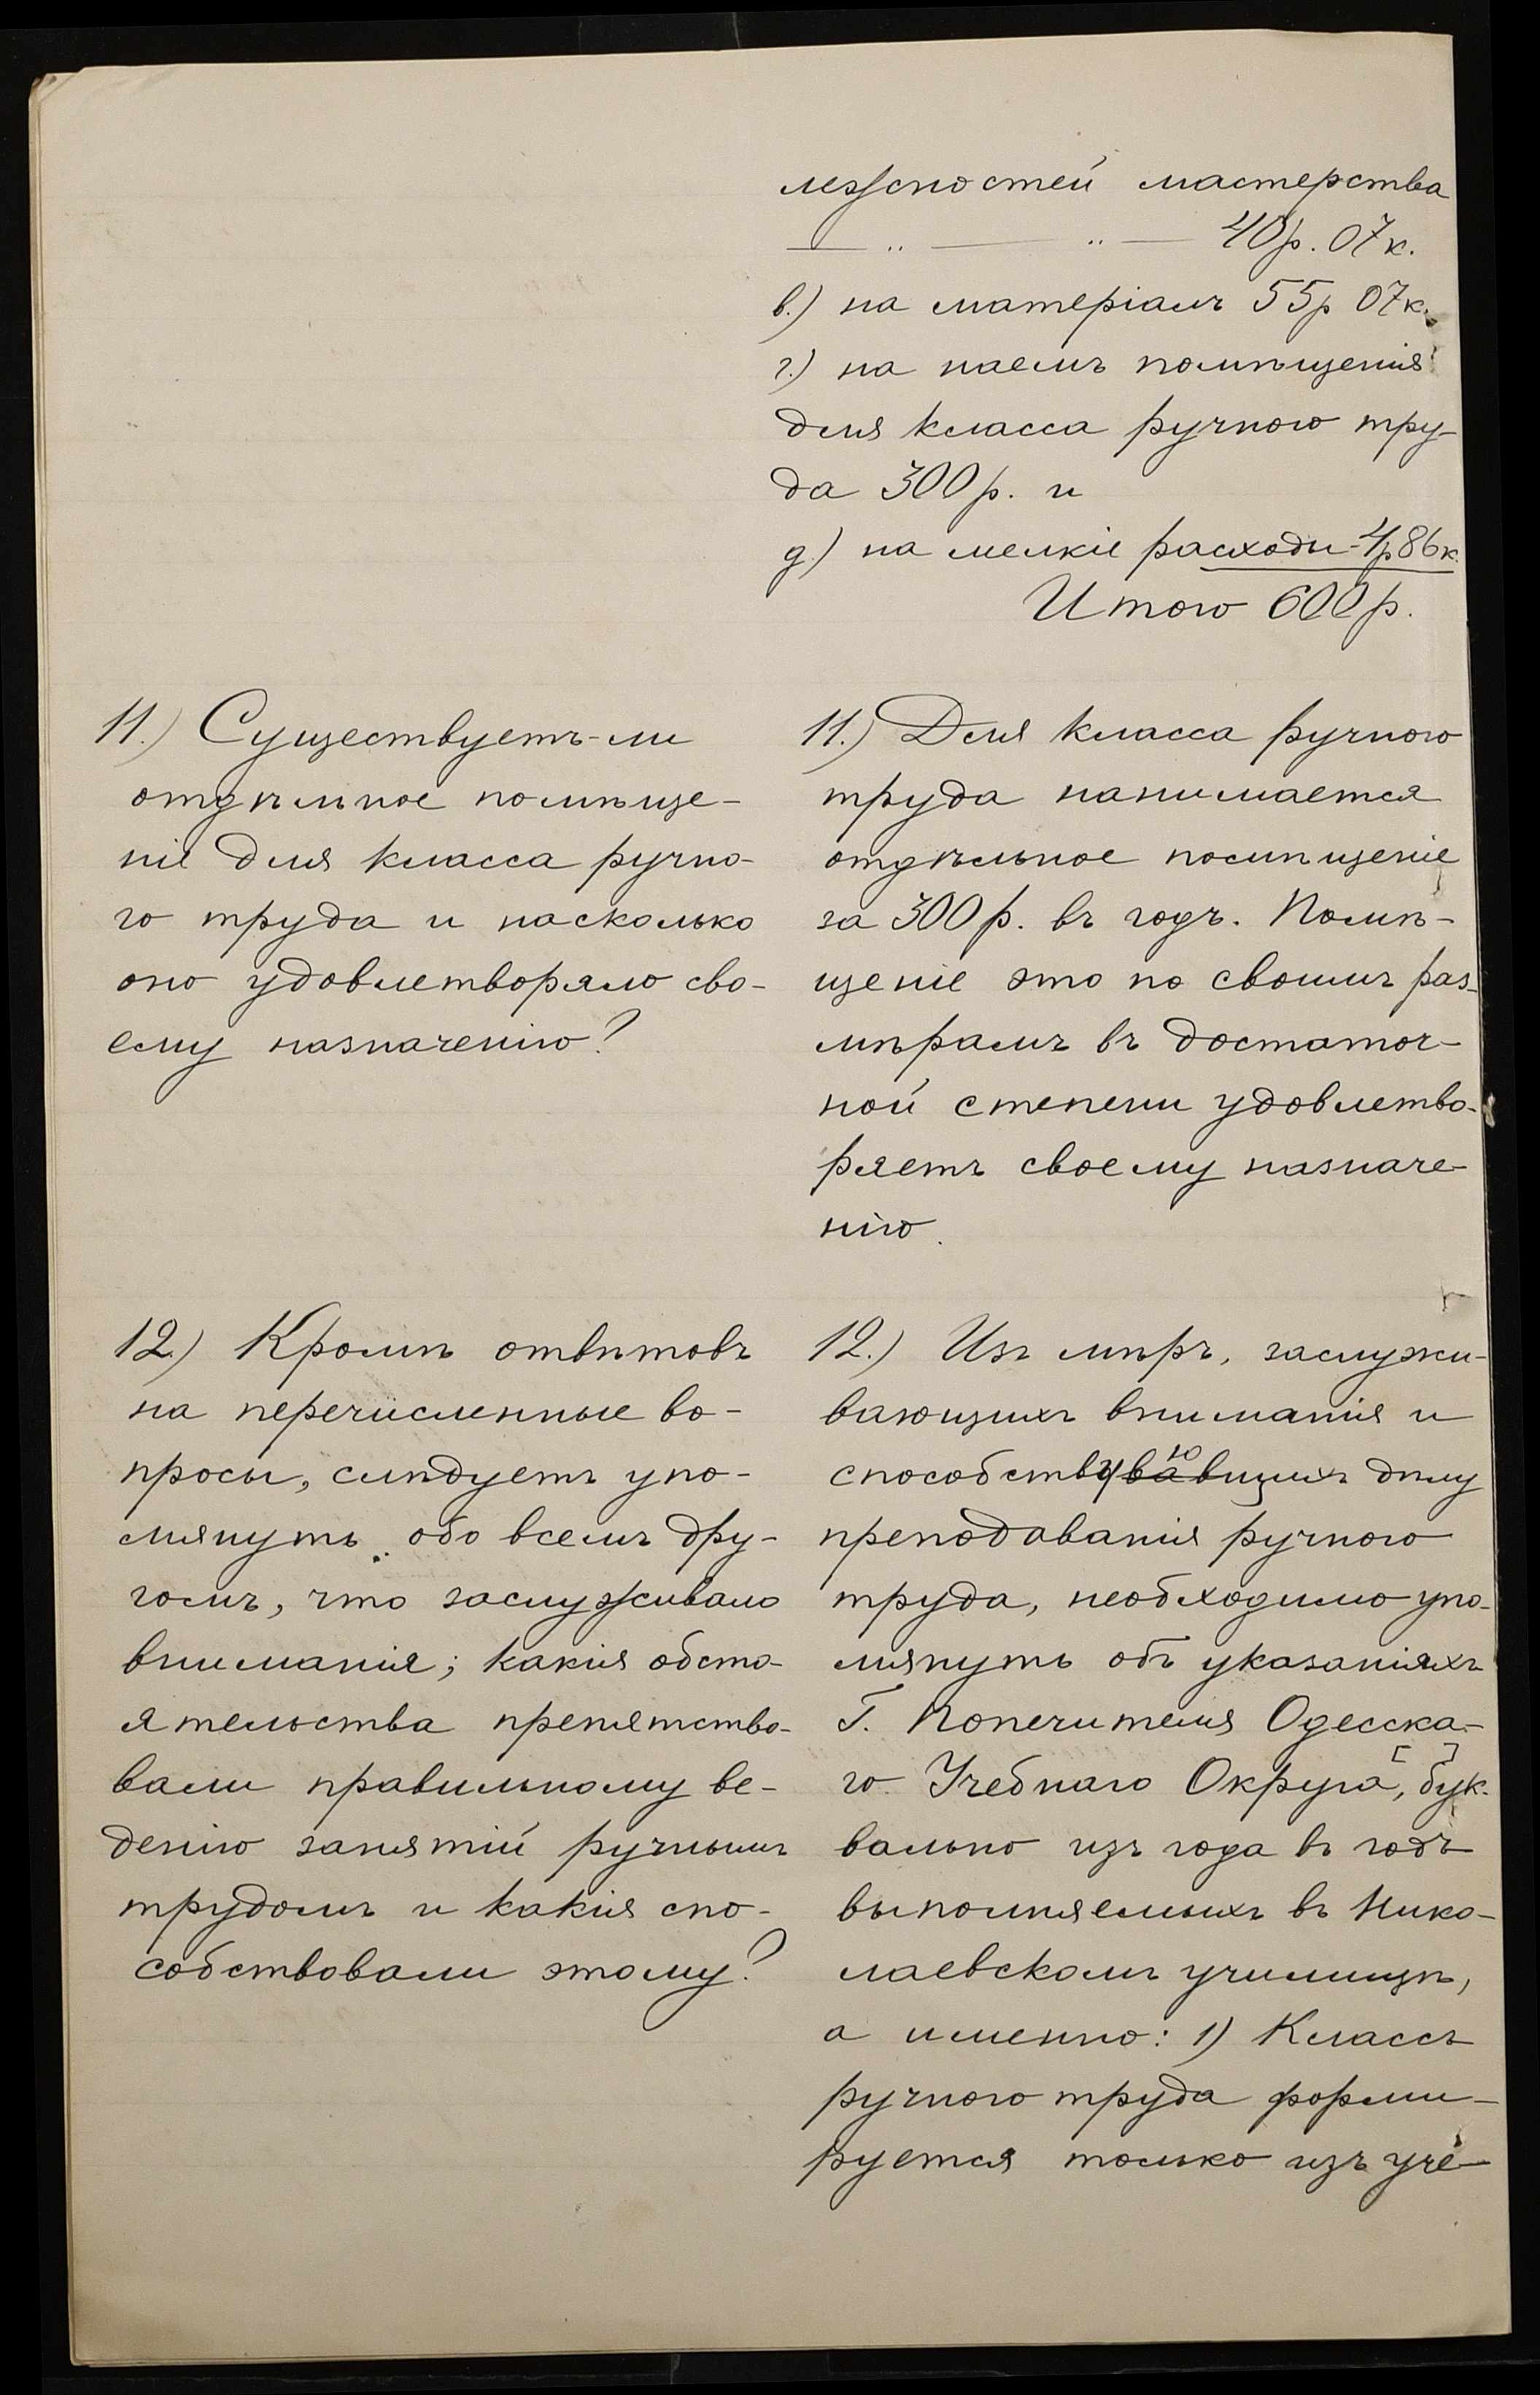 лежностей мастерства
— „ — „ — 40р. 07к.
в.) на матеріалъ 55р 07к.
г.) на наемъ помѣщенія
для класса ручного тру-
да 300р. и
д.) на мелкіе расходы - 4р 86к.
Итого 600р.
11.) Существуетъ-ли
отдѣльное помѣще-
ніе для класса ручно-
го труда и насколько
оно удовлетворяло сво-
ему назначенію?
11.) Для класса ручного
труда нанимается
отдѣльное помѣщеніе
за 300р. въ годъ. Помѣ-
щеніе это по своимъ раз-
мѣрамъ въ достаточ-
ной степени удовлетво-
ряетъ своему назначе-
нію.
12.) Кромѣ отвѣтовъ
на перечисленные во-
просы, слѣдуетъ упо-
мянуть обо всемъ дру-
гомъ, что заслуживало
вниманія; какія обсто-
ятельства препятство-
вали правильному ве-
денію занятій ручнымъ
трудомъ и какія спо-
собствовали этому?
12.) Изъ мѣръ, заслужи-
вающихъ вниманія и
ю
способствувавшихъ дѣлу
преподаванія ручного
труда, необходимо упо-
мянуть объ указаніяхъ
Г. Попечителя Одесска-
го Учебнаго Округа, [бук-]
вально изъ года въ годъ
выполняемыхъ въ Нико-
лаевскомъ училищѣ,
а именно: 1) Классъ
ручного труда форми-
руется только изъ уче-